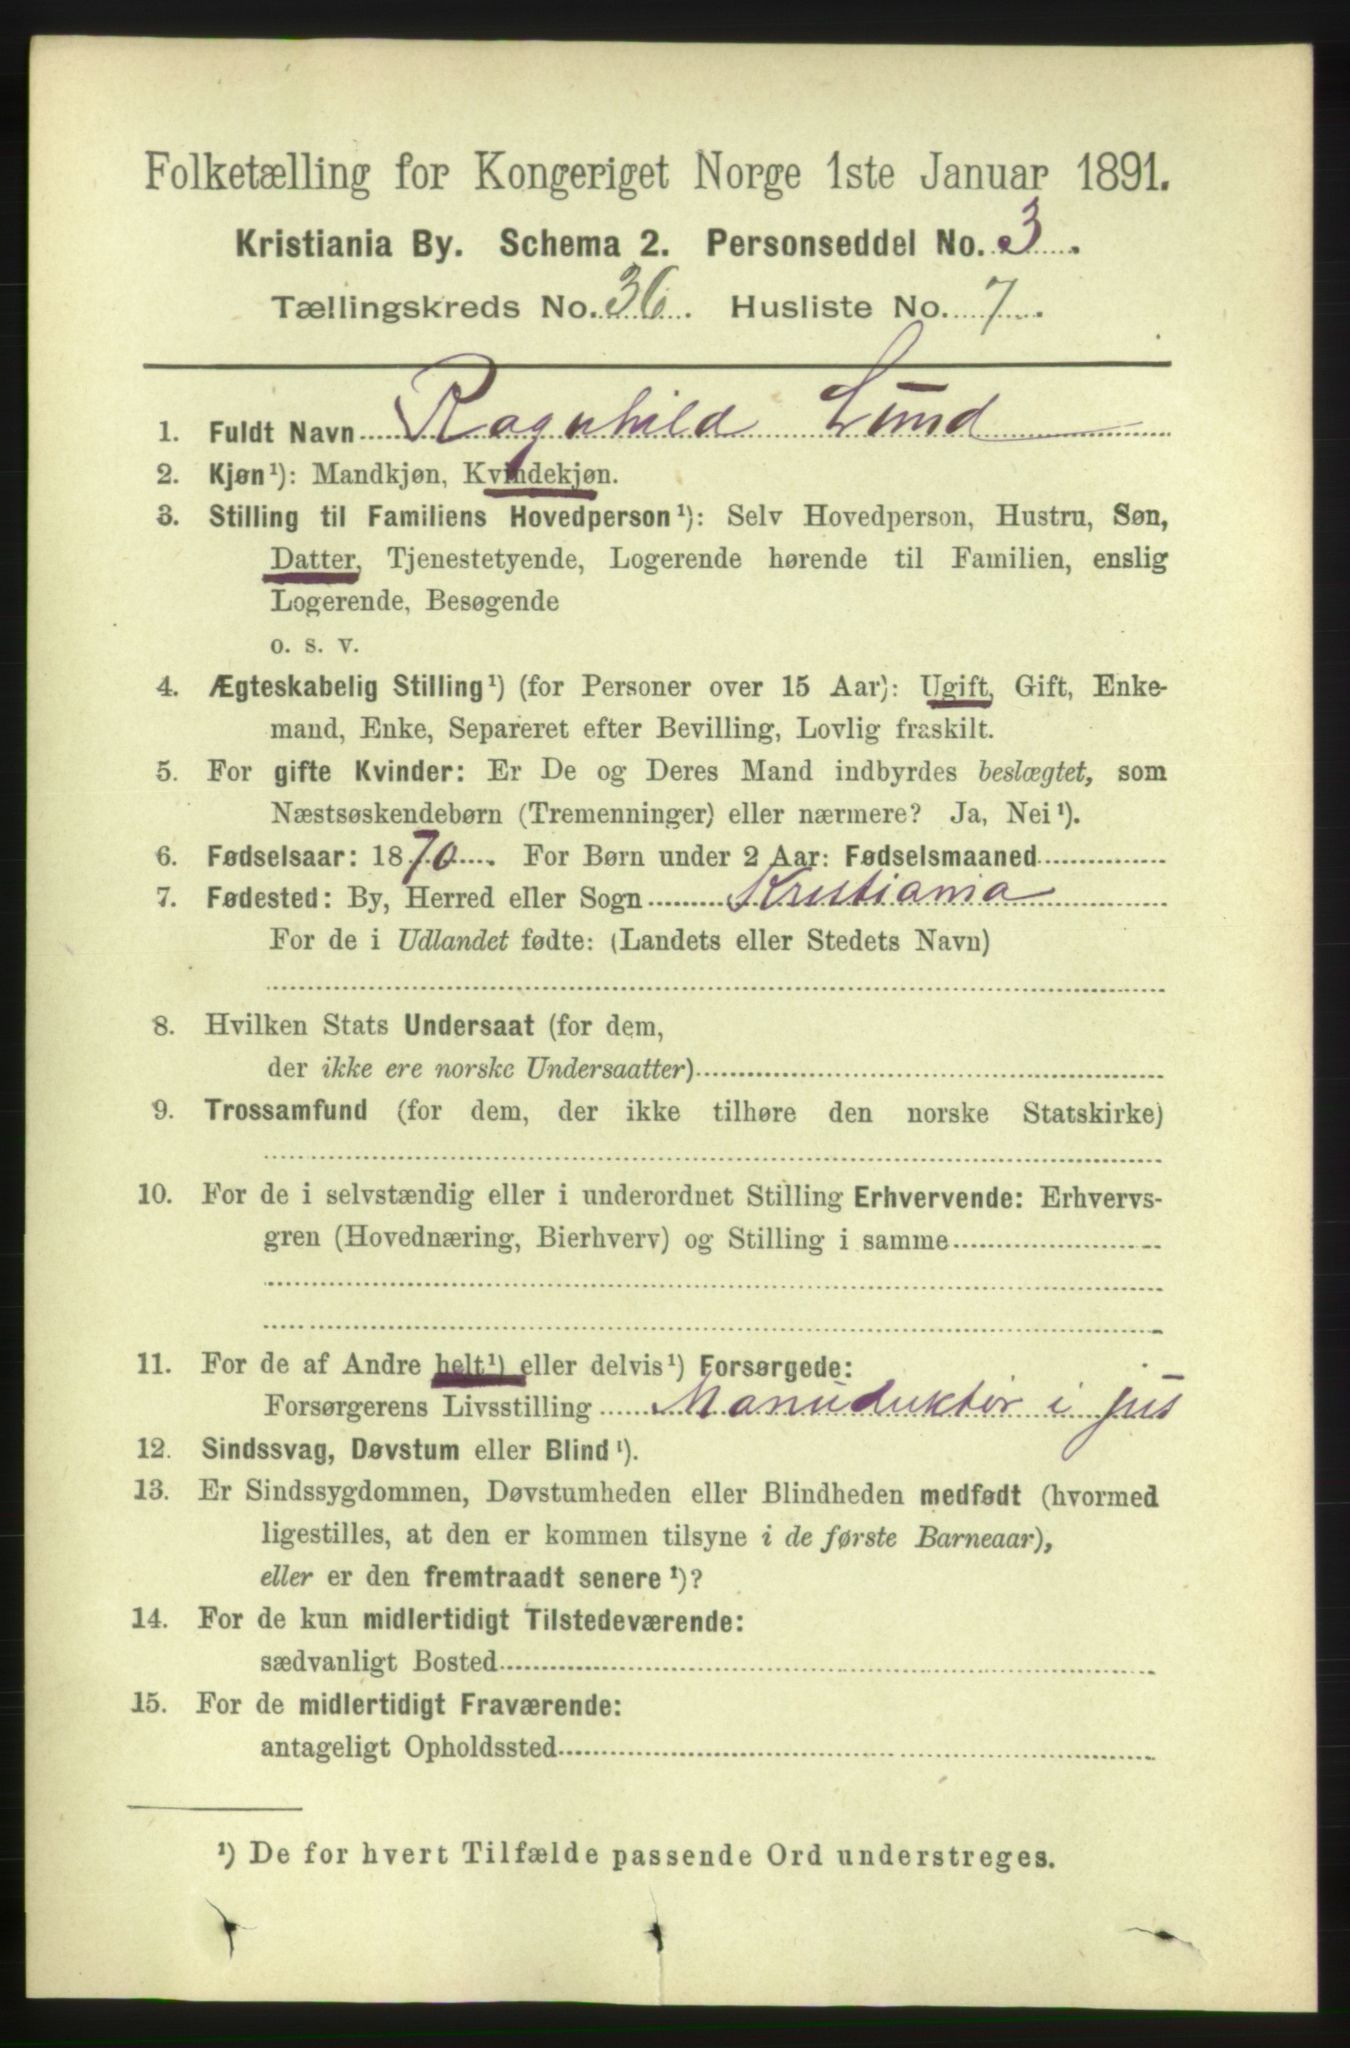 Folketælling for Kongeriget Norge 1ste Januar 1891.
Kristiania By. Schema 2. Personseddel No. 3.
Tællingskreds No. 36. Husliste No. 7.
1. Fuldt Navn Ragnhild Lund
2. Kjøn¹): Mandkjøn, Kvindekjøn.
3. Stilling til Familiens Hovedperson¹): Selv Hovedperson, Hustru, Søn,
Datter, Tjenestetyende, Logerende hørende til Familien, enslig
Logerende, Besøgende
o. s. v.
4. Ægteskabelig Stilling¹) (for Personer over 15 Aar): Ugift, Gift, Enke-
mand, Enke, Separeret efter Bevilling, Lovlig fraskilt.
5. For gifte Kvinder: Er De og Deres Mand indbyrdes beslægtet, som
Næstsøskendebørn (Tremenninger) eller nærmere? Ja, Nei¹).
6. Fødselsaar: 1870. For Børn under 2 Aar: Fødselsmaaned
7. Fødested: By, Herred eller Sogn Kristiania
For de i Udlandet fødte: (Landets eller Stedets Navn)
8. Hvilken Stats Undersaat (for dem,
der ikke ere norske Undersaatter)
9. Trossamfund (for dem, der ikke tilhøre den norske Statskirke)
10. For de i selvstændig eller i underordnet Stilling Erhvervende: Erhvervs-
gren (Hovednæring, Bierhverv) og Stilling i samme
11. For de af Andre helt¹) eller delvis¹) Forsørgede:
Forsørgerens Livsstilling Manuduktør i jus
12. Sindssvag, Døvstum eller Blind¹).
13. Er Sindssygdommen, Døvstumheden eller Blindheden medfødt (hvormed
ligestilles, at den er kommen tilsyne i de første Barneaar),
eller er den fremtraadt senere¹)?
14. For de kun midlertidigt Tilstedeværende:
sædvanligt Bosted
15. For de midlertidigt Fraværende:
antageligt Opholdssted
¹) De for hvert Tilfælde passende Ord understreges.